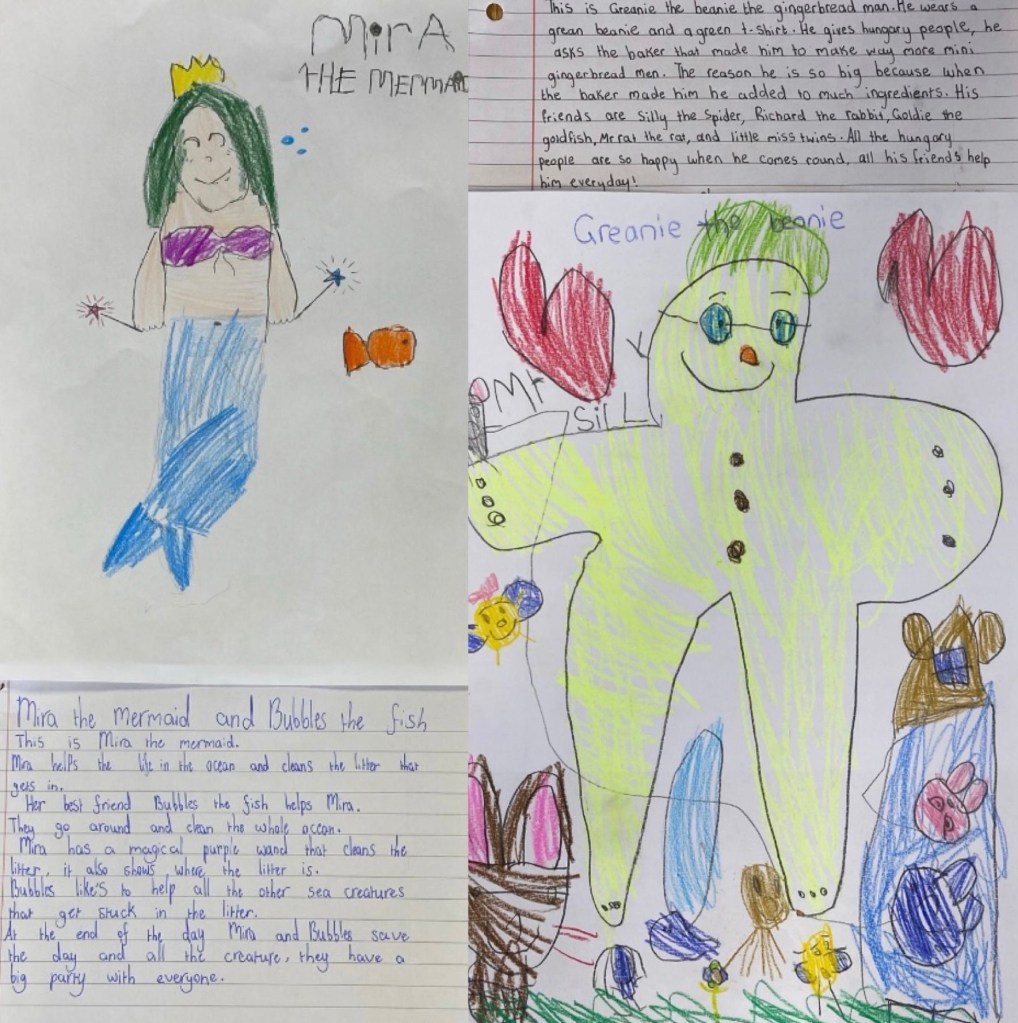 MirA
THE MERMAID
Mira the mermaid and Bubbles the fish
This is Mira the mermaid.
Mira helps the life in the ocean and cleans the litter that
gets in.
Her best friend Bubbles the fish helps Mira.
They go around and clean the whole ocean.
Mira has a magical purple wand that cleans the
litter, it also shows where the litter is.
Bubbles like's to help all the other sea creatures
that get stuck in the litter.
At the end of the day Mira and Bubbles save
the day and all the creature, they have a
big party with everyone.
This is Greanie the beanie the gingerbread man. He wears a
grean beanie and a green t-shirt. He gives hungary people, he
asks the baker that made him to make way more mini
gingerbread men. The reason he is so big because when
the baker made him he added to much ingredients. His
friends are Silly the Spider, Richard the rabbit, Goldie the
goldfish, Mr rat the rat, and little miss twins. All the hungary
people are so happy when he comes round, all his friends help
him everyday!
Greanie the beanie
Mr
SiLLY